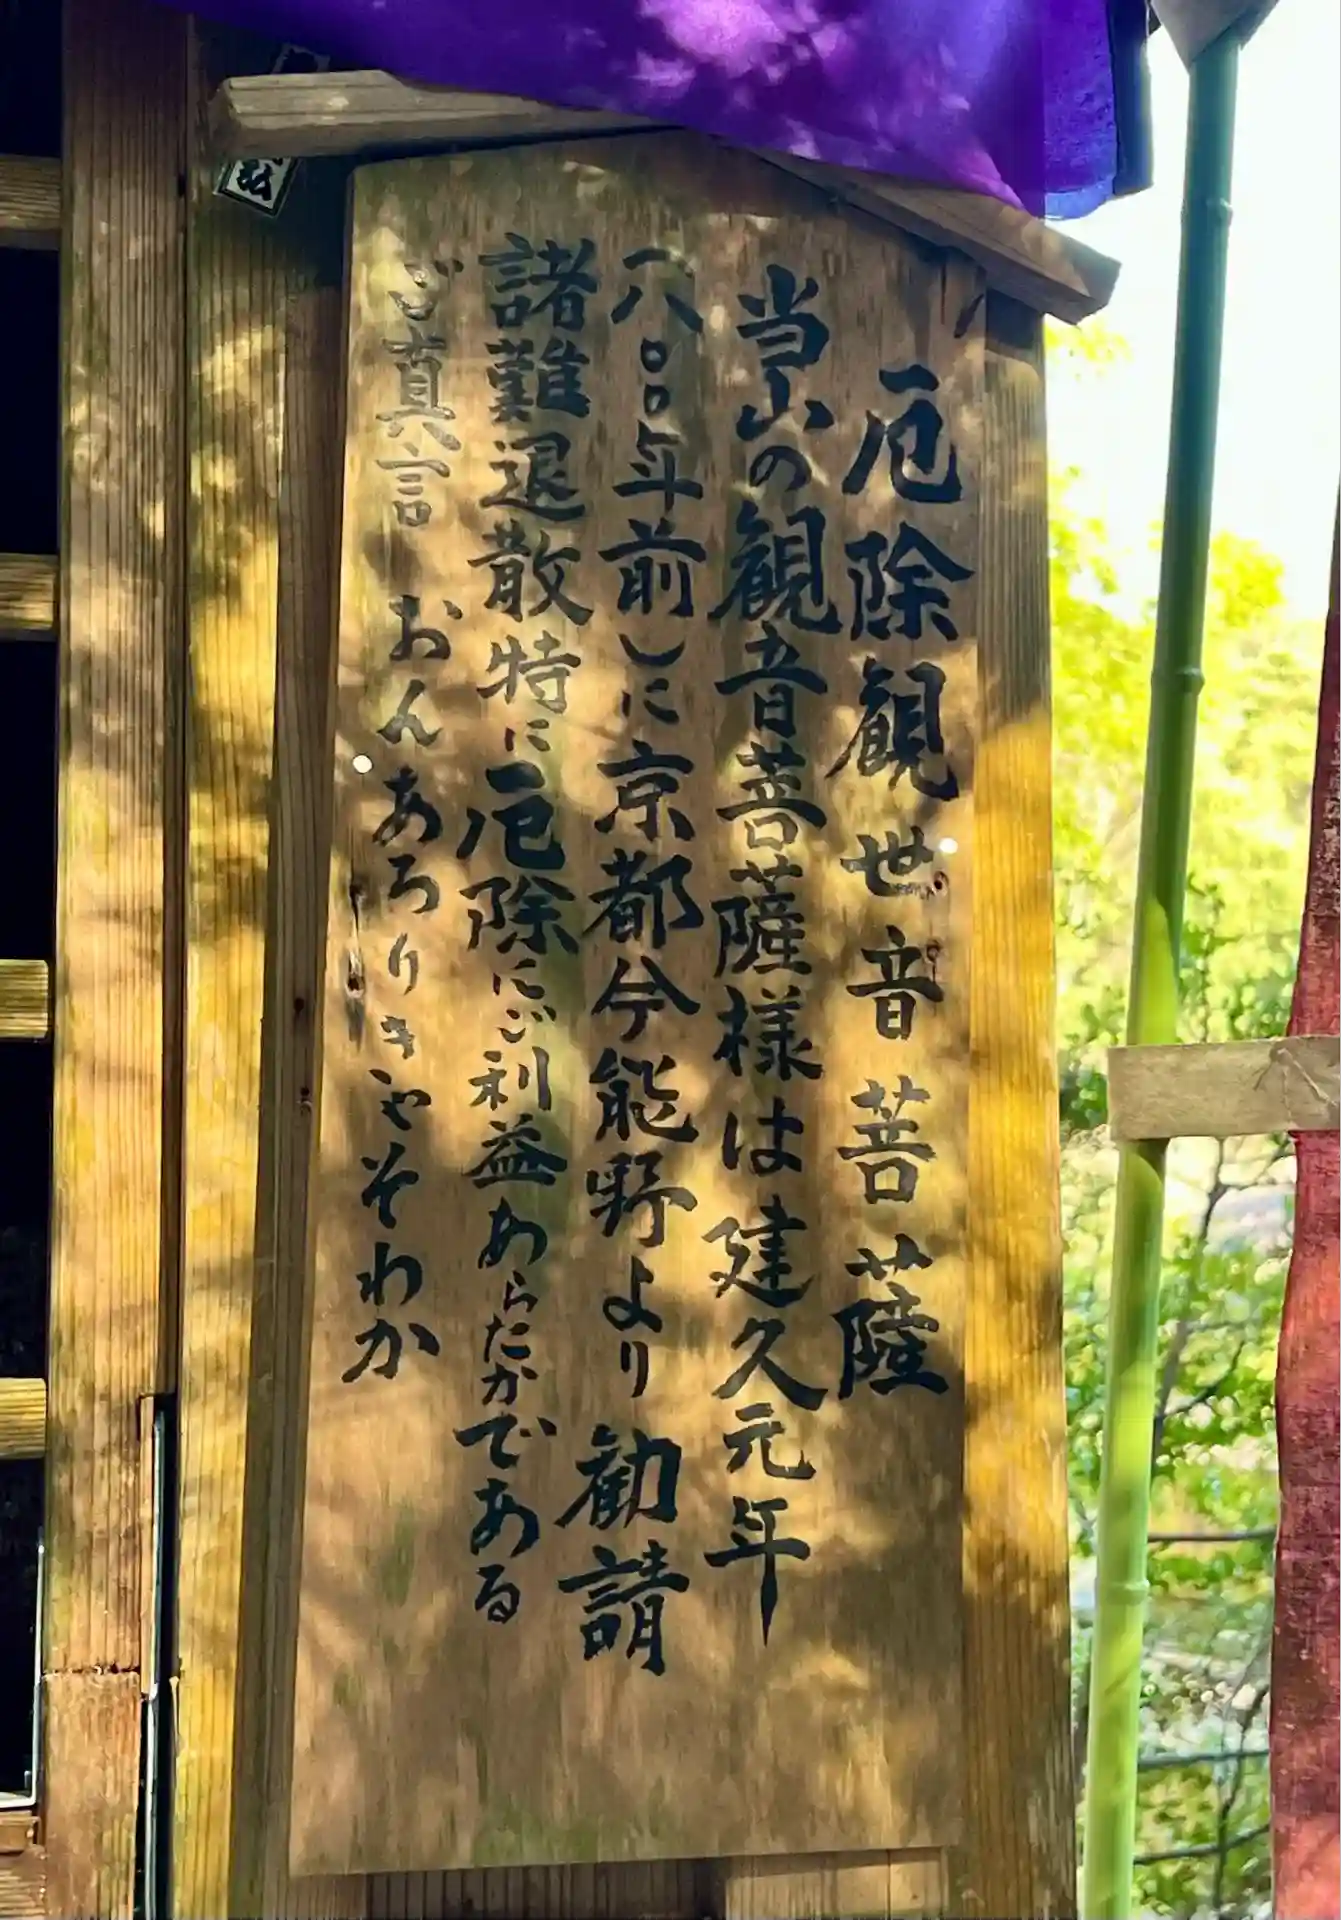 厄除観世音菩薩
当山の観音菩薩様は建久元年
一八〇〇年前)に京都今熊野より勧請
諸難退散特に厄除にご利益あらたかである
ご真言 おんあろりきゃそわか